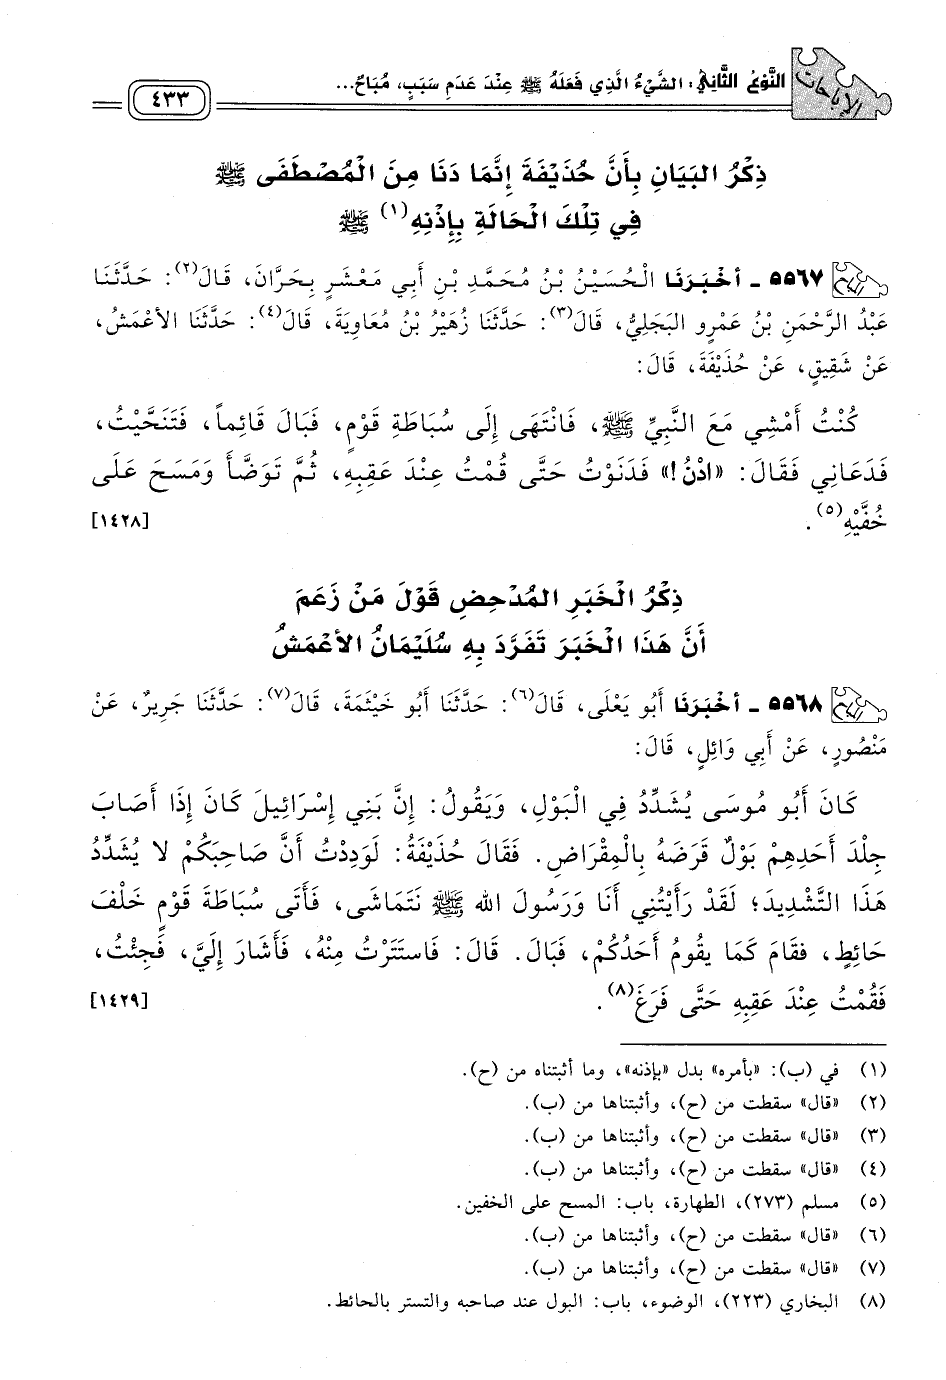 الإباحات
النَّوْعُ الثَّانِيْ: الشَّيْءُ الَّذِي فَعَلَهُ ﷺ عِنْدَ عَدَمِ سَبَبٍ، مُبَاحٌ...
٤٣٣
ذِكْرُ البَيَانِ بِأَنَّ حُذَيْفَةَ إِنَّمَا دَنَا مِنَ الْمُصْطَفَى ﷺ
فِي تِلْكَ الْحَالَةِ بِإِذْنِهِ(١) ﷺ
٥٥٦٧ - أخْبَرَنَا الْحُسَيْنُ بْنُ مُحَمَّدِ بْنِ أَبِي مَعْشَرٍ بِحَرَّانَ، قَالَ(٢): حَدَّثَنَا
عَبْدُ الرَّحْمَنِ بْنُ عَمْرٍو البَجَلِيُّ، قَالَ(٣): حَدَّثَنَا زُهَيْرُ بْنُ مُعَاوِيَةَ، قَالَ(٤): حَدَّثَنَا الأعْمَشُ،
عَنْ شَقِيقٍ، عَنْ حُذَيْفَةَ، قَالَ:
كُنْتُ أَمْشِي مَعَ النَّبِيِّ ﷺ، فَانْتَهَى إِلَى سُبَاطَةِ قَوْمٍ، فَبَالَ قَائِماً، فَتَنَحَّيْتُ،
فَدَعَانِي فَقَالَ: «ادْنُ!» فَدَنَوْتُ حَتَّى قُمْتُ عِنْدَ عَقِبِهِ، ثُمَّ تَوَضَّأَ وَمَسَحَ عَلَى
خُفَّيْهِ(٥). [١٤٢٨]
ذِكْرُ الْخَبَرِ المُدْحِضِ قَوْلَ مَنْ زَعَمَ
أَنَّ هَذَا الْخَبَرَ تَفَرَّدَ بِهِ سُلَيْمَانُ الأعْمَشُ
٥٥٦٨ - أخْبَرَنَا أَبُو يَعْلَى، قَالَ(٦): حَدَّثَنَا أَبُو خَيْثَمَةَ، قَالَ(٧): حَدَّثَنَا جَرِيرٌ، عَنْ
مَنْصُورٍ، عَنْ أَبِي وَائِلٍ، قَالَ:
كَانَ أَبُو مُوسَى يُشَدِّدُ فِي الْبَوْلِ، وَيَقُولُ: إِنَّ بَنِي إِسْرَائِيلَ كَانَ إِذَا أَصَابَ
جِلْدَ أَحَدِهِمْ بَوْلٌ قَرَضَهُ بِالْمِقْرَاضِ. فَقَالَ حُذَيْفَةُ: لَوَدِدْتُ أَنَّ صَاحِبَكُمْ لا يُشَدِّدُ
هَذَا التَّشْدِيدَ؛ لَقَدْ رَأَيْتُنِي أَنَا وَرَسُولَ الله ﷺ نَتَمَاشَى، فَأَتَى سُبَاطَةَ قَوْمٍ خَلْفَ
حَائِطٍ، فقَامَ كَمَا يقُومُ أَحَدُكُمْ، فَبَالَ. قَالَ: فَاسْتَتَرْتُ مِنْهُ، فَأَشَارَ إِلَيَّ، فَجِئْتُ،
فَقُمْتُ عِنْدَ عَقِبِهِ حَتَّى فَرَغَ(٨). [١٤٢٩]
(١) في (ب): «بأمره» بدل «بإذنه»، وما أثبتناه من (ح).
(٢) «قال» سقطت من (ح)، وأثبتناها من (ب).
(٣) «قال» سقطت من (ح)، وأثبتناها من (ب).
(٤) «قال» سقطت من (ح)، وأثبتناها من (ب).
(٥) مسلم (٢٧٣)، الطهارة، باب: المسح على الخفين.
(٦) «قال» سقطت من (ح)، وأثبتناها من (ب).
(٧) «قال» سقطت من (ح)، وأثبتناها من (ب).
(٨) البخاري (٢٢٣)، الوضوء، باب: البول عند صاحبه والتستر بالحائط.